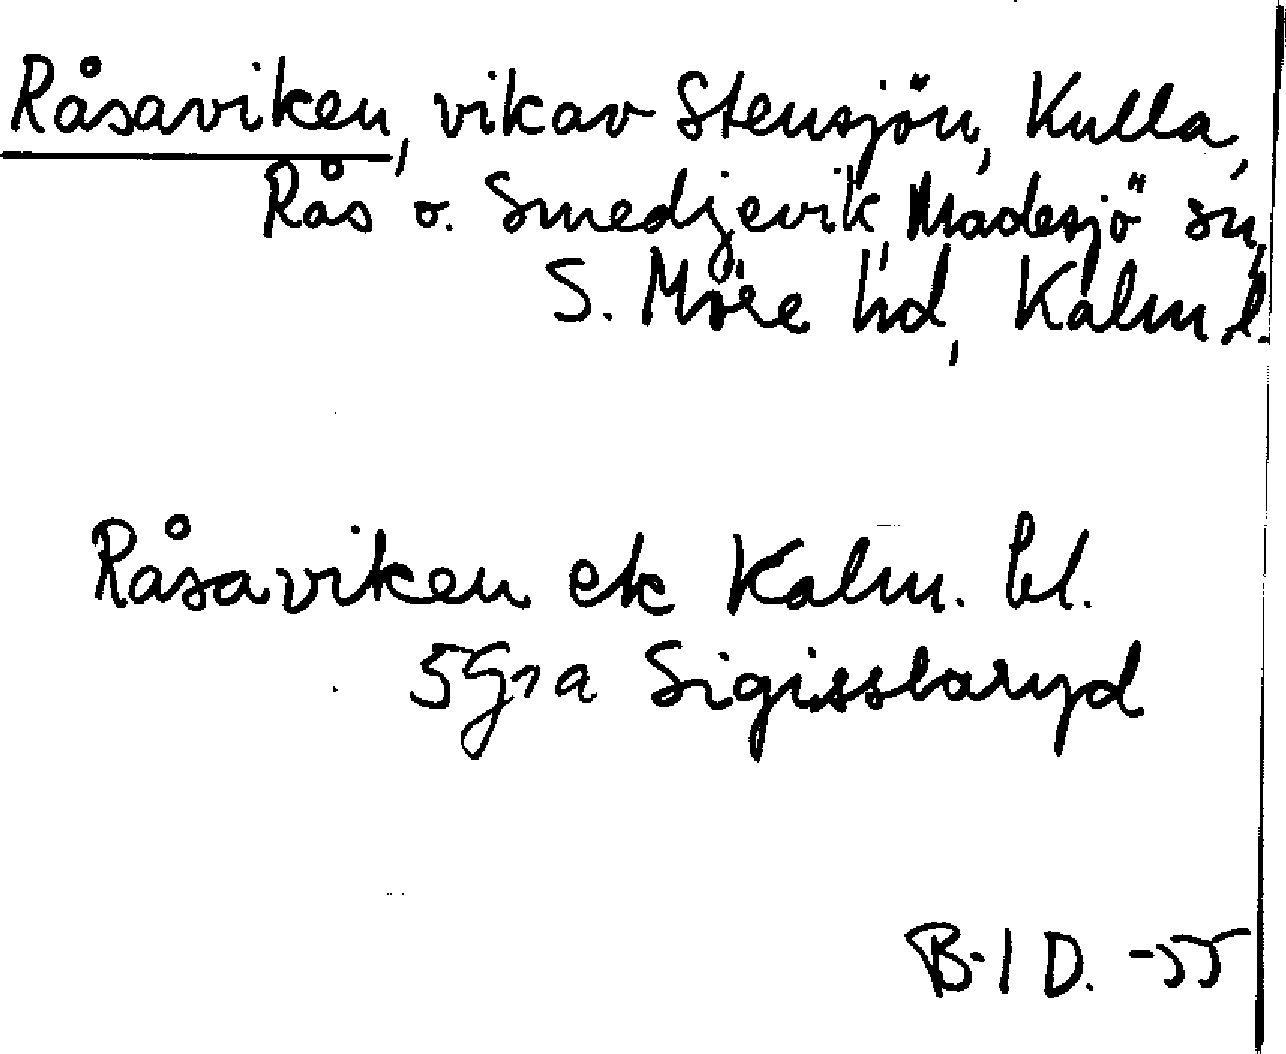 Råsaviken, vik av Stensjön, Kulla,
Rås o. Smedjevik, Madesjö sn,
S. Möre hd, Kalm. l.
Råsaviken ek Kalm. bl.
5 G1a Sigisslaryd
B-I D. -55